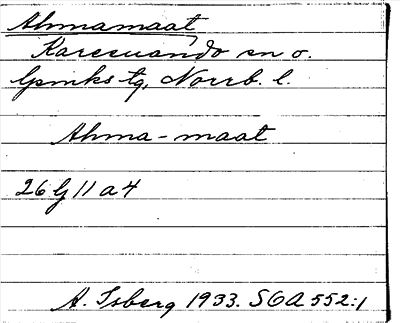 Ahmamaat
Karesuando sn o.
lpmks tg, Norrb. l.
Ahma-maat
26 G 11 a 4
A. Isberg 1933. SOA 552:1